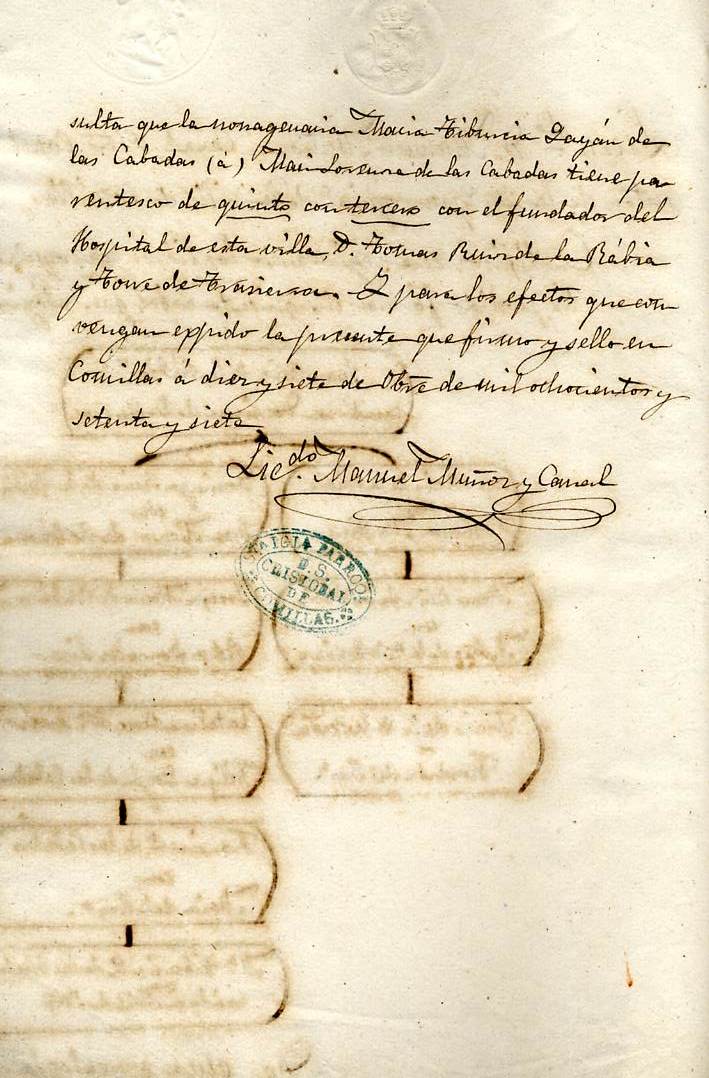 sulta que la nonagenaria Maria Tiburcia Gayón de
las Cabadas (á) Mari-Lorenza de las Cabadas tiene pa-
rentesco de quinto con tercero con el fundador del
Hospital de esta villa, D. Tomas Ruiz de la Rábia
y Torre de Trasierra. Y para los efectos que con-
vengan expido la presente que firmo y sello en
Comillas á diez y siete de 8bre de mil ochocientos y
setenta y siete
Licdo. Manuel Muñoz y Canal
PARROQL
D. S.
CRISTOBAL
DE
COMILLAS.